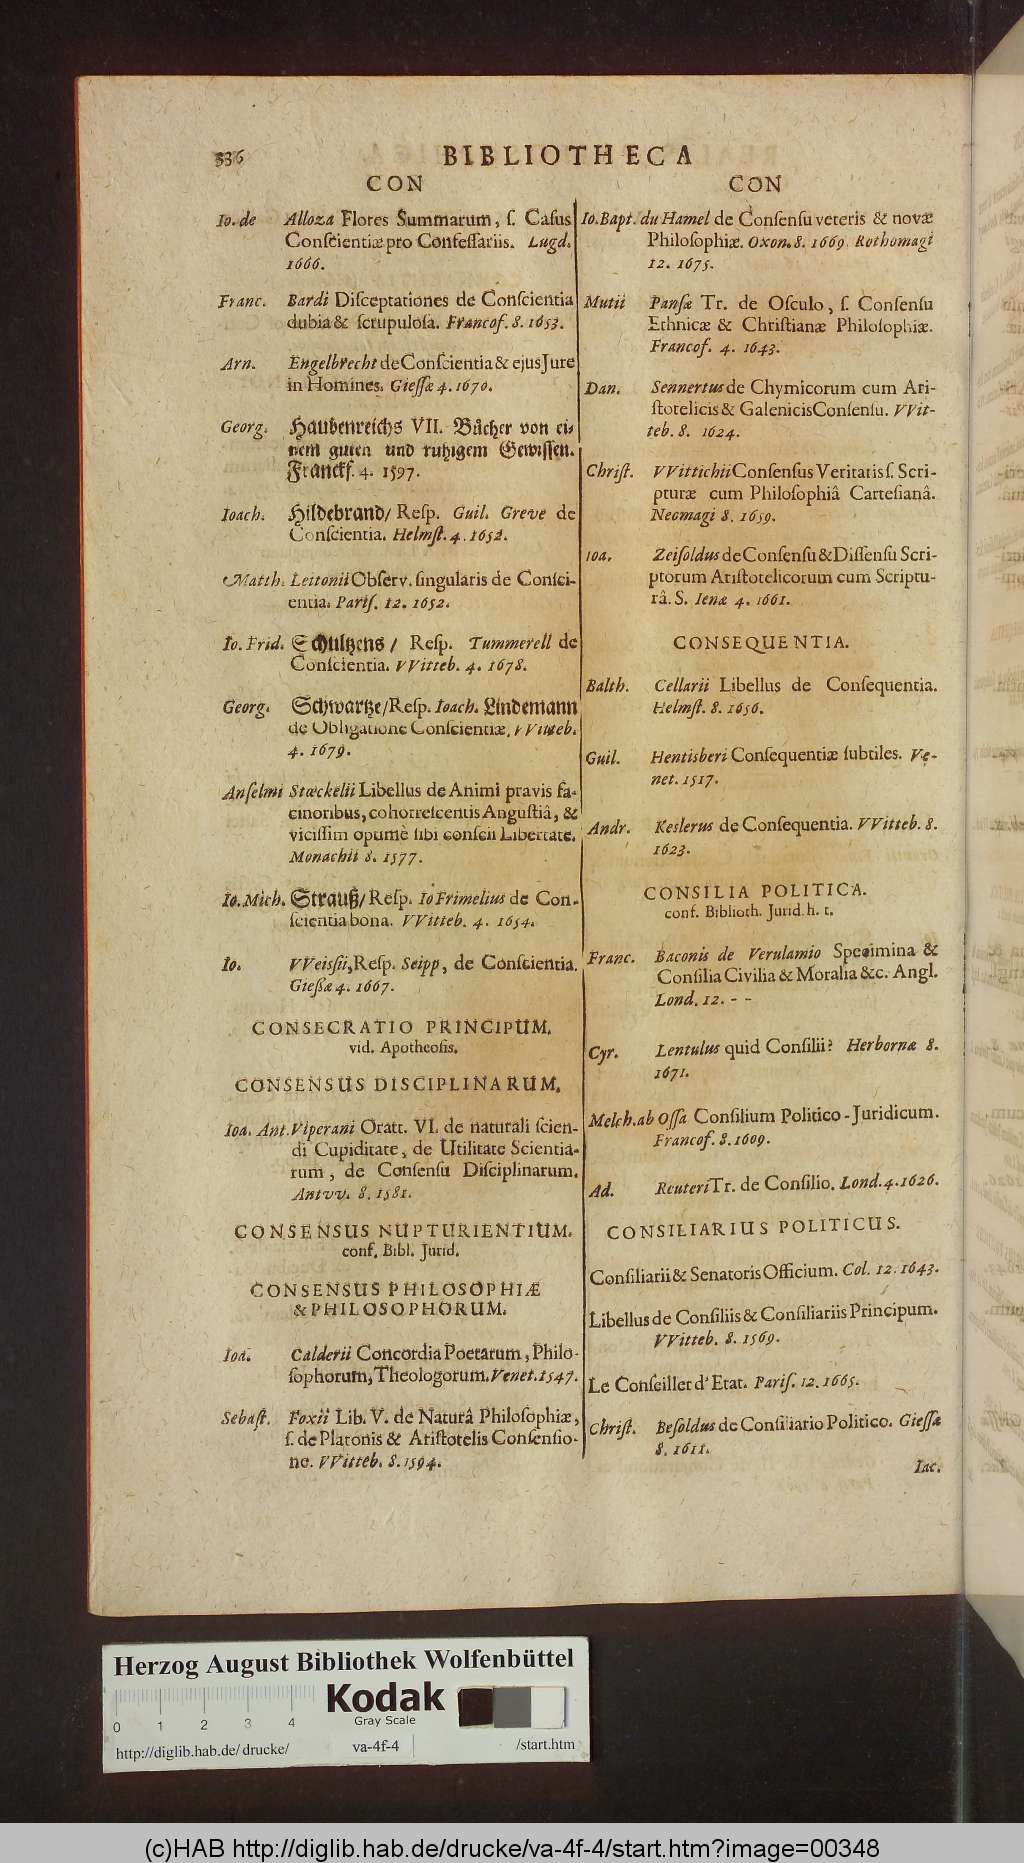 336
BIBLIOTHECA
CON
Io. de Alloza Flores Summarum, ſ. Caſus
Conſcientiæ pro Confeſſariis. Lugd.
1666.
Franc. Bardi Diſceptationes de Conſcientia
dubia & ſcrupuloſa. Francof. 8. 1653.
Arn. Engelbrecht de Conſcientia & ejus Jure
in Homines. Gieſſæ 4. 1670.
Georg. Haubenreichs VII. Bůcher von ei⸗
nem guten und ruhigem Gewiſſen.
Franckf. 4. 1597.
Ioach. Hildebrand/ Reſp. Guil. Greve de
Conſcientia. Helmſt. 4. 1652.
Matth. Leitonii Obſerv. ſingularis de Conſci-
entia. Pariſ. 12. 1652.
Io. Frid. Schultzens / Reſp. Tummerell de
Conſcientia. VVitteb. 4. 1678.
Georg. Schwartze/ Reſp. Ioach. Lindemann
de Obligatione Conſcientiæ. VVitteb.
4. 1679.
Anſelmi Stœckelii Libellus de Animi pravis fa-
cinoribus, cohorreſcentis Anguſtiâ, &
viciſſim opumè ſibi conſcii Libertate.
Monachii 8. 1577.
Io. Mich. Strauß/ Reſp. Io Frimelius de Con-
ſcientia bona. VVitteb. 4. 1654.
Io. VVeiſſii, Reſp. Seipp, de Conſcientia.
Gießæ 4. 1667.
CONSECRATIO PRINCIPUM.
vid. Apotheoſis.
CONSENSUS DISCIPLINARUM.
Ioa. Ant. Viperani Oratt. VI. de naturali ſcien-
di Cupiditate, de Utilitate Scientia-
rum, de Conſenſu Diſciplinarum.
Antvv. 8. 1581.
CONSENSUS NUPTURIENTIUM.
conf. Bibl. Jurid.
CONSENSUS PHILOSOPHIÆ
& PHILOSOPHORUM.
Ioa. Calderii Concordia Poetarum, Philo-
ſophorum, Theologorum. Venet. 1547.
Sebaſt. Foxii Lib. V. de Naturâ Philoſophiæ,
ſ. de Platonis & Ariſtotelis Conſenſio-
ne. VVitteb. 8. 1594.
CON
Io. Bapt. du Hamel de Conſenſu veteris & novæ
Philoſophiæ. Oxon. 8. 1669. Rothomagi
12. 1675.
Mutii Panſæ Tr. de Oſculo, ſ. Conſenſu
Ethnicæ & Chriſtianæ Philoſophiæ.
Francof. 4. 1643.
Dan. Sennertus de Chymicorum cum Ari-
ſtotelicis & Galenicis Conſenſu. VVit-
teb. 8. 1624.
Chriſt. VVittichii Conſenſus Veritatis ſ. Scri-
pturæ cum Philoſophiâ Carteſianâ.
Neomagi 8. 1659.
Ioa. Zeiſoldus de Conſenſu & Diſſenſu Scri-
ptorum Ariſtotelicorum cum Scriptu-
râ. S. Ienæ 4. 1661.
CONSEQUENTIA.
Balth. Cellarii Libellus de Conſequentia.
Helmſt. 8. 1656.
Guil. Hentisberi Conſequentiæ ſubtiles. Ve-
net. 1517.
Andr. Keslerus de Conſequentia. VVitteb. 8.
1623.
CONSILIA POLITICA.
conf. Biblioth. Jurid. h. t.
Franc. Baconis de Verulamio Specimina &
Conſilia Civilia & Moralia &c. Angl.
Lond. 12. - -
Cyr. Lentulus quid Conſilii? Herbornæ 8.
1671.
Melch. ab Oſſa Conſilium Politico-Juridicum.
Francof. 8. 1609.
Ad. Reuteri Tr. de Conſilio. Lond. 4. 1626.
CONSILIARIUS POLITICUS.
Conſiliarii & Senatoris Officium. Col. 12. 1643.
Libellus de Conſiliis & Conſiliariis Principum.
VVitteb. 8. 1569.
Le Conſeiller d'Etat. Pariſ. 12. 1665.
Chriſt. Beſoldus de Conſiliario Politico. Gieſſæ
8. 1611.
Iac.
Herzog August Bibliothek Wolfenbüttel
Kodak
Gray Scale
0 1 2 3 4
http://diglib.hab.de/drucke/ va-4f-4 /start.htm
(c)HAB http://diglib.hab.de/drucke/va-4f-4/start.htm?image=00348